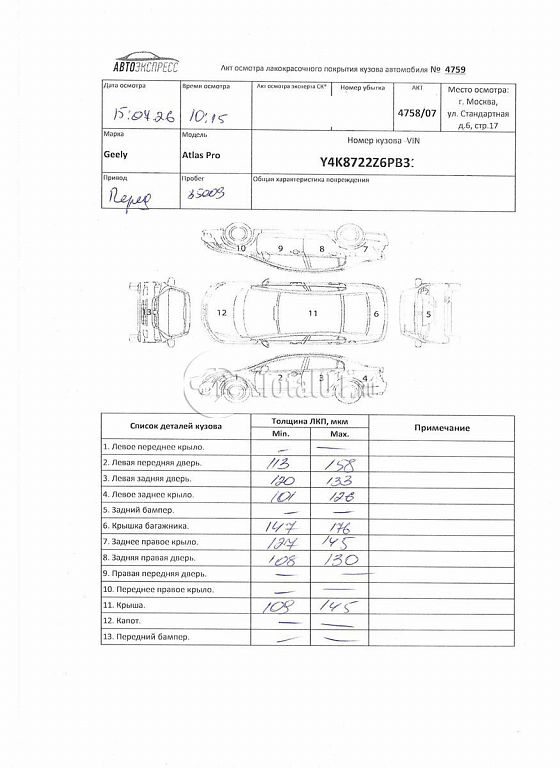 АВТОЭКСПРЕСС
Акт осмотра лакокрасочного покрытия кузова автомобиля № 4759
Дата осмотра Время осмотра Акт осмотра эксперта СК* Номер убытка АКТ Место осмотра:
15.04.26 10:15 4758/07 г. Москва,
ул. Стандартная
д.6, стр.17
Марка Модель Номер кузова -VIN
Geely Atlas Pro Y4K8722Z6PB3
Привод Пробег Общая характеристика повреждения
Перед 35009
10 9 8 7
13 12 11 6 5
1 2 3 4
Список деталей кузова Толщина ЛКП, мкм Примечание
Min. Max.
1. Левое переднее крыло. — —
2. Левая передняя дверь. 113 158
3. Левая задняя дверь. 120 133
4. Левое заднее крыло. 101 128
5. Задний бампер. — —
6. Крышка багажника. 147 176
7. Заднее правое крыло. 127 145
8. Задняя правая дверь. 108 130
9. Правая передняя дверь. — —
10. Переднее правое крыло. — —
11. Крыша. 109 145
12. Капот. — —
13. Передний бампер. — —